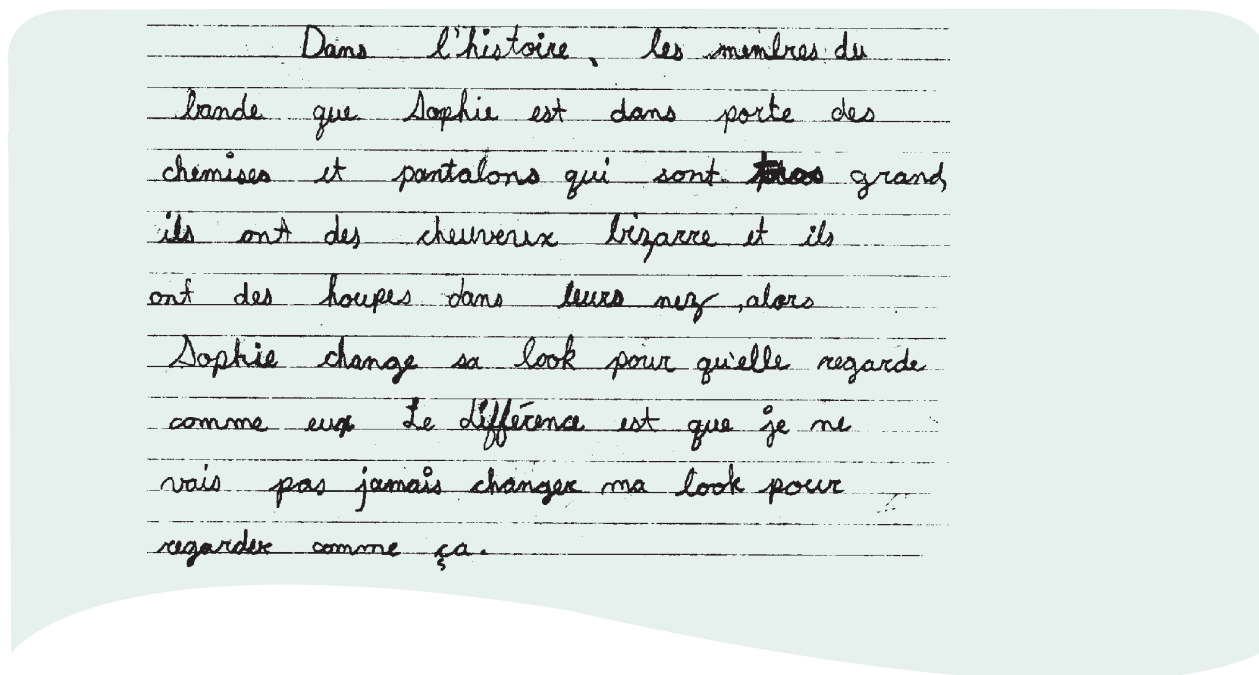 Dans l'histoire, les membres du
bande que Sophie est dans porte des
chemises et pantalons qui sont grand,
ils ont des cheuveux bizarre et ils
ont des houpes dans leurs nez, alors
Sophie change sa look pour qu'elle regarde
comme eux Le différence est que je ne
vais pas jamais changer ma look pour
regarder comme ça.